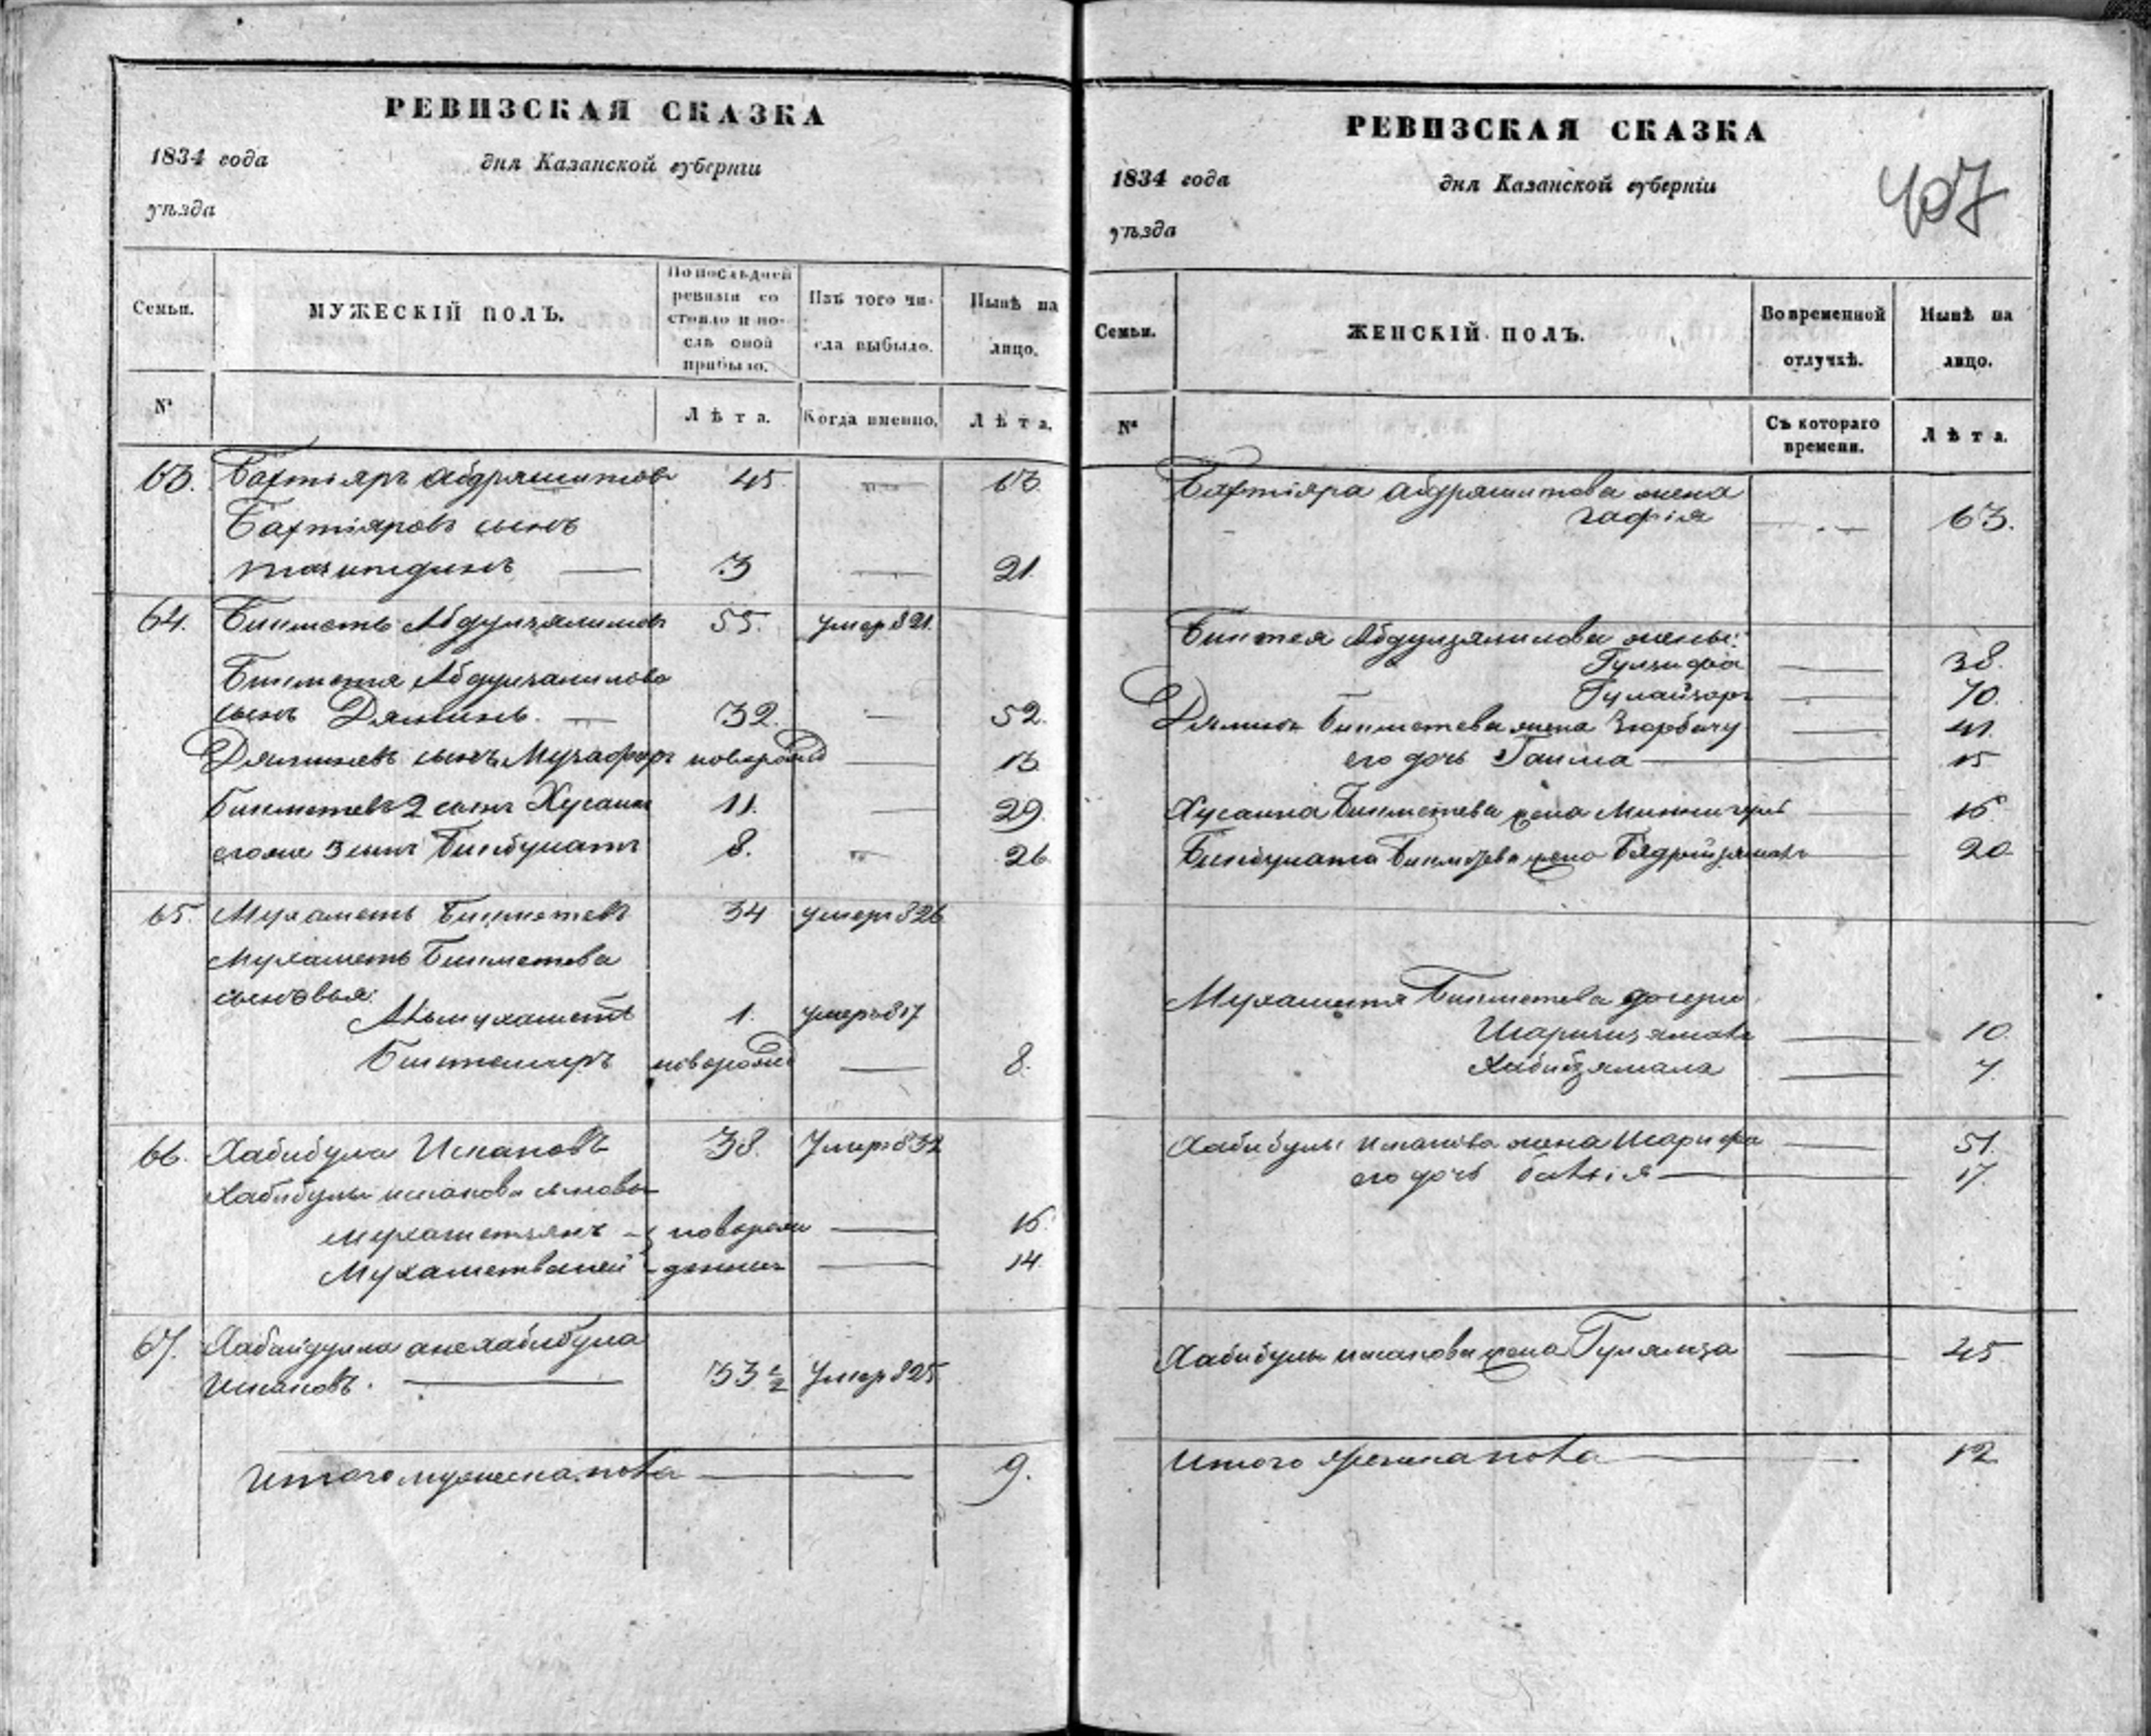 РЕВИЗСКАЯ СКАЗКА
1834 года дня Казанской губерніи
уѣзда
Семьи. МУЖЕСКІЙ ПОЛЪ. По послѣдней ревизіи состояло и послѣ оной прибыло. Изъ того числа выбыло. Нынѣ на лицо.
№ Лѣта. Когда именно. Лѣта.
63. Бахтіяръ Абдряшитовъ 45 — 63
Бахтіяровъ сынъ
Тазитдинъ — 3 — 21
64. Бикметь Абдулзялиловъ 55. умер 821
Бикметя Абдулзалилова
сынъ Дяминь. — 32. — 52.
Дяминевъ сынъ Музафаръ новорожд — 13
Бикметевъ 2 сынъ Хусаин 11. — 29.
его же 3 сынъ Бикбулатъ 8. — 26
65. Мухаметь Бикметевъ 34 умеръ 826
Мухаметь Бикметева
сыновья:
Альмухаметь 1. умеръ 817
Биктемиръ новорожд — 8.
66. Хабибула Исхаковъ 38. Умеръ 832
Хабибулы исхакова сыновья
Мухаметзянъ - новорож — 16.
Мухаметвалей - денные — 14.
67. Хабайдулла а не хабибула
Исхаковъ. — 33 1/2 Умер 825
Итого мужеска пола — 9.
РЕВИЗСКАЯ СКАЗКА
407
1834 года дня Казанской губерніи
уѣзда
Семьи. ЖЕНСКІЙ ПОЛЪ. Во временной отлучкѣ. Нынѣ на лицо.
№ Съ котораго времени. Лѣта.
Бахтіяра Абдряшитова жена
Гафія — 63.
Биктея Абдулзялилова жены:
Гулзифа — 38.
Гулайзаръ — 70.
Дямина Бикметева жена — 41.
его дочь Гаима — 15
Хусаина Бикметева жена — 16.
Бикбулата Бикметева жена Бядрыйзямалъ — 20
Мухаметя Бикметева дочери
— 10.
Хабибзямала — 7.
Хабибулы исхакова жена Шарифа — 51.
его дочь — 17.
Хабибулы исхакова жена — 45
Итого женска пола — 12